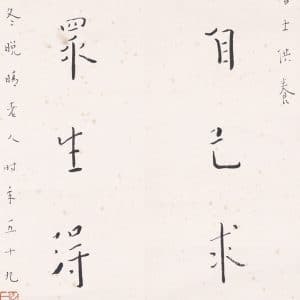 士供養
自己求
眾生得
冬晚晴老人时年五十九